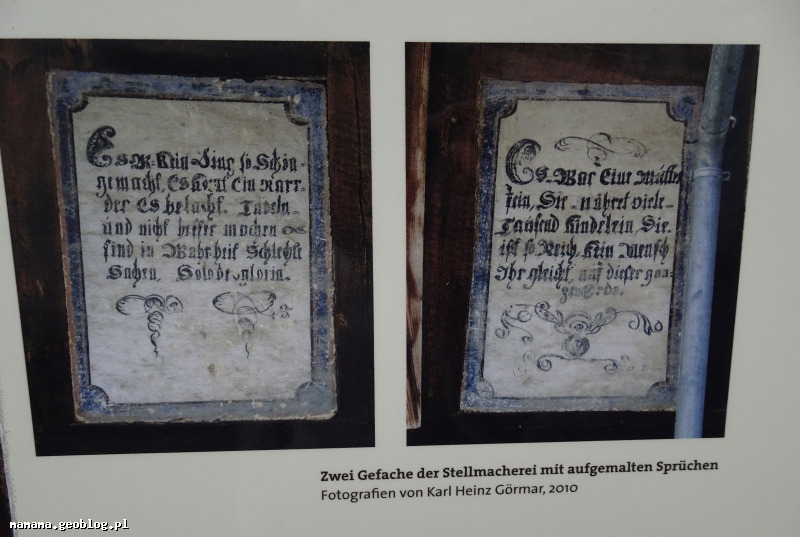 Es W. Kein Ding so Schön
gemacht, Es kom̄t Ein Narr-
der Es belacht. Tadeln-
und nicht besser machen
sind in Wahrheit Schlechte
Sachen, Solo de gloria.
Es. War Eine Mütter
lein, Sie- nähret viele-
Tausend Kindelein, Sie-
ist so Reich, Kein Mensch
Ihr gleicht, auf dieser gan-
zen Erde.
Zwei Gefache der Stellmacherei mit aufgemalten Sprüchen
Fotografien von Karl Heinz Görmar, 2010
mamama.geoblog.pl